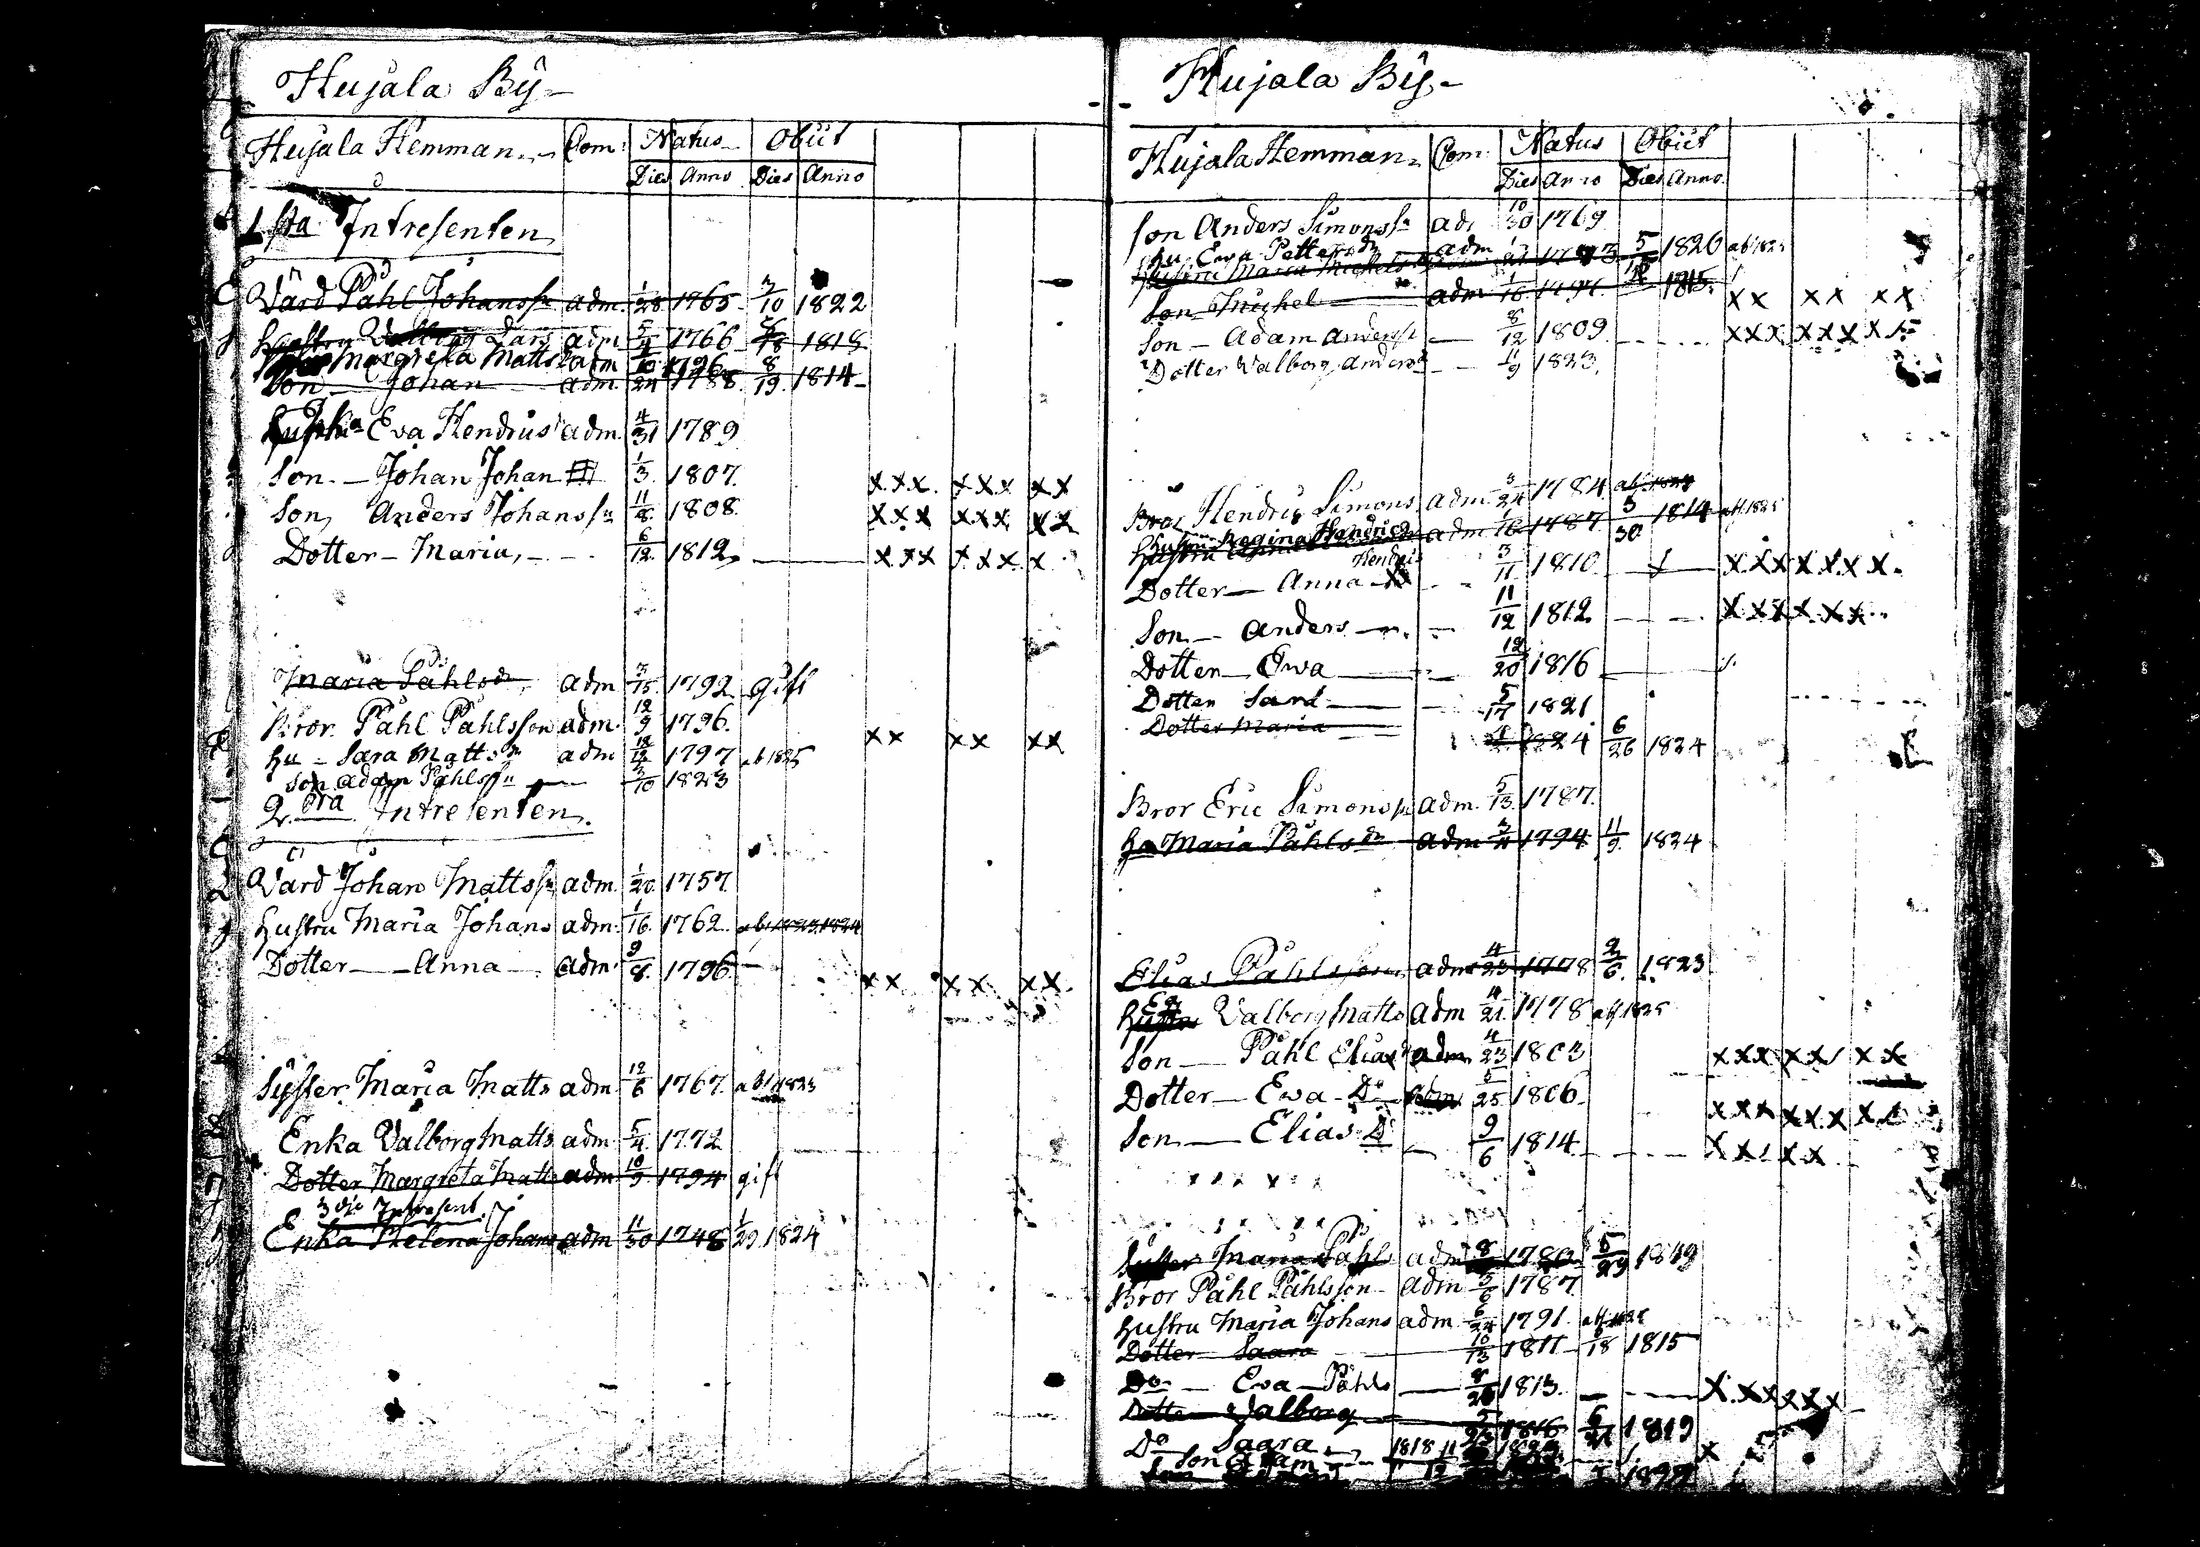 Hujala By
Hujala Hemman Com: Natus Obiit
Dies Anno Dies Anno
1sta Intresenten
Värd Påhl Johanss adm. 1/28 1765 3/10 1822
Hustru Valborg Lars adm 5/4 1766 1818
Margreta Matts adm 1796
Son Johan adm 24 1788 8/19 1814
Eva Hendrics adm. 4/31 1789
Son Johan Johan 1/3 1807 xxx xxx xx
Son Anders Johanss 11/8 1808 xxx xxx xx
Dotter Maria 6/12 1812 xxx xxx x
Maria Påhlsdr adm 3/15 1792 gift
Bror Påhl Påhlsson adm. 12/9 1796 xx xx xx
Hu Sara Mattsdr adm 12/12 1797 ab 1825
Son Adam Påhlss 3/10 1823
2dra Intresenten
Värd Johan Matts adm. 1/20 1757
Hustru Maria Johans adm. 1/16 1762 1823 1824
Dotter Anna adm. 9/8 1796 xx xx xx
Syster Maria Matts adm 12/6 1767 abs 1823
Enka Valborg Matts adm 5/4 1772
Dotter Margreta Matts adm 10/9 1794 gift
3die Intresent
Enka Helena Johans adm 11/30 1748 1/29 1824
Hujala By
Hujala Hemman Com: Natus Obiit
Dies Anno Dies Anno
Son Anders Simonss ad 10/30 1769
Hu Ewa Pettersdr adm 1826 abs 1825
Hustru Maria Michels 5
Son Michel adm 1/16 1815 xx xx xx
Son Adam Anderss 8/12 1809 xxx xxx x
Dotter Valborg Andersdr 11/9 1823
Bror Hendric Simons adm 3/24 1784
Hustru Regina Hendricsdr adm 16 1787 3/30 1814 abs 1825
Dotter Anna Hendrics 3/11 1810 xxx xxx x
Son Anders 11/12 1812 xxxx xx
Dotter Ewa 12/20 1816
Dotter Sara 5/17 1821
Dotter Maria 1824 6/26 1824
Bror Eric Simonss adm. 5/13 1787
Hu Maria Påhlsdr adm 1794 11/9 1824
Elias Påhlsson adm 4/23 1778 2/6 1823
Valborg Matts adm 4/21 1778 abs 1825
Son Påhl Elias adm 4/23 1803 xxx xx xx
Dotter Ewa Do 5/25 1806 xxx xxx xx
Son Elias Do 9/6 1814 xxx xx
Syster Maria Påhls adm 8 1780 5/29 1819
Bror Påhl Påhlsson adm 5/6 1787
Hustru Maria Johans adm 6/24 1791
Dotter Saara 10/13 1811 18 1815
Do Eva Påhls 8 1813 x xx xxx
Dotter Valborg 5 1816 6/21 1819
Do Saara 1818 11 x
Son Adam 12